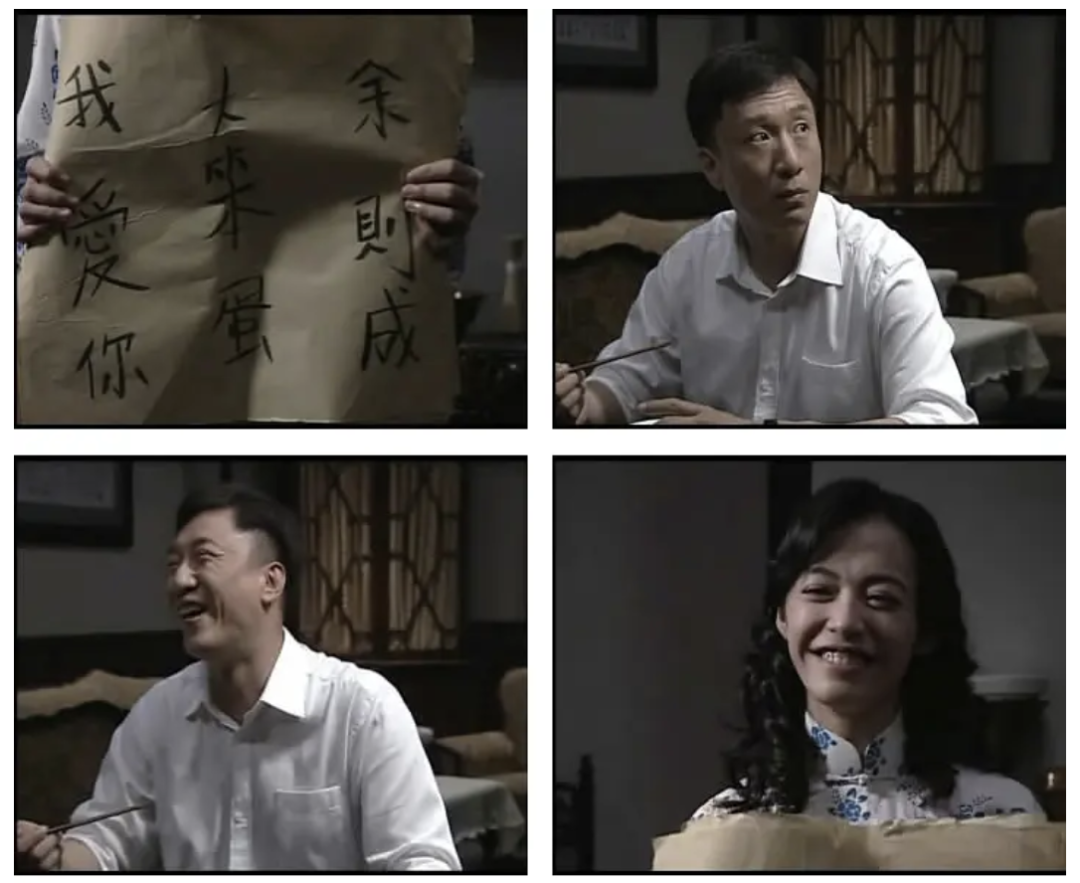 余則成
大笨蛋
我愛你